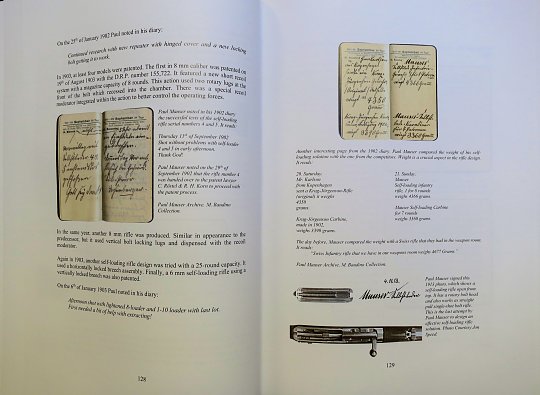 On the 25th of January 1902 Paul noted in his diary:
Continued research with new repeater with hinged cover and a new locking
bolt getting it to work.
In 1903, at least four models were patented. The first in 8 mm caliber was patented on
19th of August 1903 with the D.R.P. number 155,722. It featured a new short recoil
system with a magazine capacity of 8 rounds. This action used two rotary lugs at the
front of the bolt which recessed into the chamber. There was a special recoil
moderator integrated within the action to better control the operating forces.
Paul Mauser noted in his 1902 diary
the successful tests of the self-loading
rifle serial numbers 4 and 3. It reads:
Thursday 11th of September 1902
Shot without problems with self-loader
4 and 3 in early afternoon.
Thank God!
Paul Mauser noted on the 29th of
September 1902 that the rifle number 4
was handed over to the patent lawyer
C. Röstel & R. H. Korn to proceed with
the patent process.
Paul Mauser Archive. M. Baudino
Collection.
In the same year, another 8 mm rifle was produced. Similar in appearance to the
predecessor, but it used vertical bolt locking lugs and dispensed with the recoil
moderator.
Again in 1903, another self-loading rifle design was tried with a 25-round capacity. It
used a horizontally locked breech assembly. Finally, a 6 mm self-loading rifle using a
vertically locked breech was also patented.
On the 6th of January 1905 Paul noted in his diary:
Afternoon shot with lightened 8-loader and 1-10 loader with last lot.
First needed a bit of help with extracting!
128
Another interesting page from the 1902 diary. Paul Mauser compared the weight of his self-
loading solution with the one from the competitors. Weight is a crucial aspect in the rifle design.
It reads:
20. Saturday.
Mr. Karlson
from Kopenhagen
sent a Krag-Jørgensen-Rifle
(original) it weighs
4350
grams
Krag-Jørgensen Carbine,
made in 1902.
weighs 3390 grams.
21. Sunday.
Mauser
Self-loading infantry
rifle, 1 for 8 rounds
weighs 4366 grams
Mauser Self-loading Carbine
for 7 rounds
weighs 3560 grams
The day before, Mauser compared the weight with a Swiss rifle that they had in the weapon room.
It reads:
"Swiss Infantry rifle that we have in our weapon room weighs 4677 Grams."
Paul Mauser Archive. M. Baudino Collection.
Paul Mauser signed this
1913 photo, which shows a
self-loading rifle open from
top. It has a rotary bolt head
and also works as straight
pull single-shot bolt rifle.
This is the last attempt by
Paul Mauser to design an
effective self-loading rifle
solution. Photo Courtesy Jon
Speed.
129